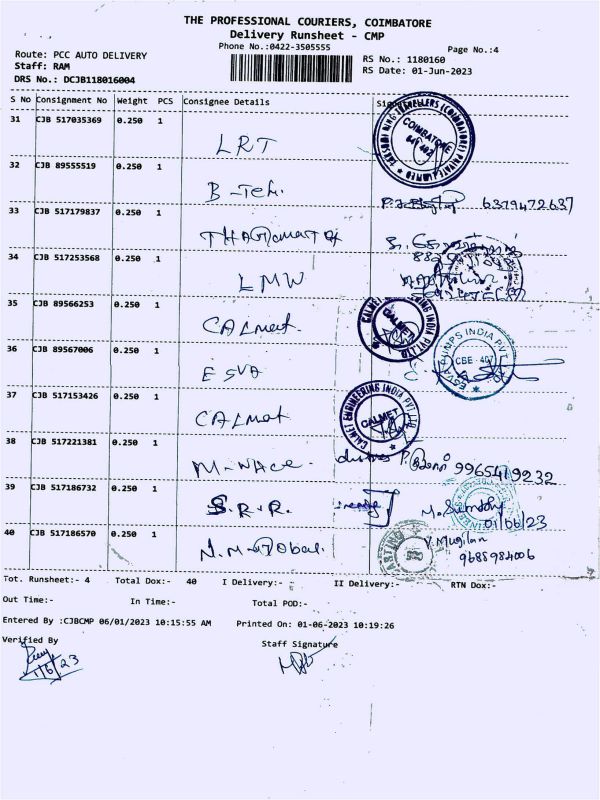 THE PROFESSIONAL COURIERS, COIMBATORE
Delivery Runsheet - CMP
Phone No.:0422-3505555
Page No.:4
Route: PCC AUTO DELIVERY
Staff: RAM
DRS No.: DCJB118016004
RS No.: 1180160
RS Date: 01-Jun-2023
S No Consignment No Weight PCS Consignee Details
31 CJB 517035369 0.250 1 LRT
COIMBATORE
32 CJB 89555519 0.250 1 B-Tek.
6379472637
33 CJB 517179837 0.250 1
34 CJB 517253568 0.250 1 LMW
35 CJB 89566253 0.250 1 CALmet
CALMET
36 CJB 89567006 0.250 1 ESVA
ESVA PUMPS INDIA PVT. LTD
CBE - 407
37 CJB 517153426 0.250 1 CALmet
CALMET ENGINEERING INDIA PVT. LTD
CALMET
38 CJB 517221381 0.250 1
9965419232
39 CJB 517186732 0.250 1 S.R.R.
01/06/23
40 CJB 517186570 0.250 1
V. Mugilan
9688984006
Tot. Runsheet:- 4 Total Dox:- 40 I Delivery:- II Delivery:- RTN Dox:-
Out Time:- In Time:- Total POD:-
Entered By :CJBCMP 06/01/2023 10:15:55 AM Printed On: 01-06-2023 10:19:26
Verified By Staff Signature
1/6/23